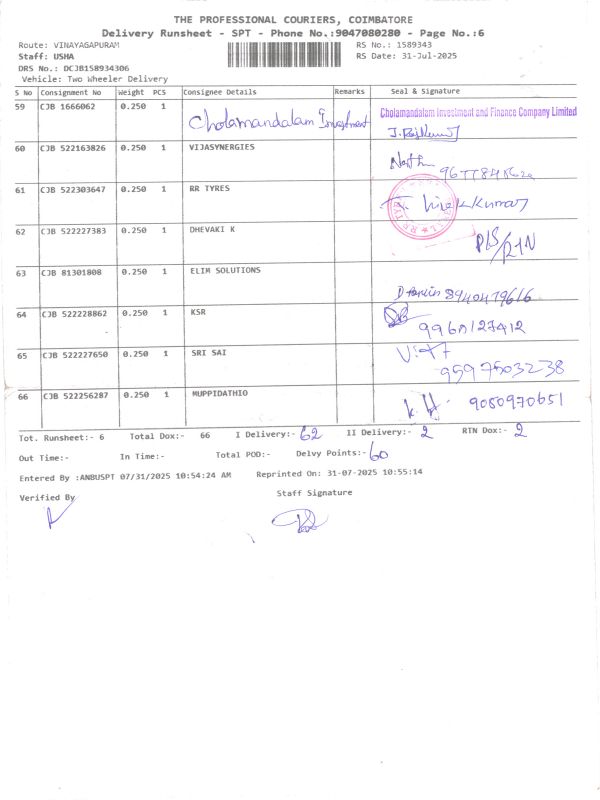 THE PROFESSIONAL COURIERS, COIMBATORE
Delivery Runsheet - SPT - Phone No.:9047080280 - Page No.:6
Route: VINAYAGAPURAM RS No.: 1589343
Staff: USHA RS Date: 31-Jul-2025
DRS No.: DCJB158934306
Vehicle: Two Wheeler Delivery
S No Consignment No Weight PCS Consignee Details Remarks Seal & Signature
59 CJB 1666062 0.250 1 Cholamandalam Investment Cholamandalam Investment and Finance Company Limited
60 CJB 522163826 0.250 1 VIJASYNERGIES
61 CJB 522303647 0.250 1 RR TYRES
62 CJB 522227383 0.250 1 DHEVAKI K
63 CJB 81301808 0.250 1 ELIM SOLUTIONS 8940479616
64 CJB 522228862 0.250 1 KSR 9960127412
65 CJB 522227650 0.250 1 SRI SAI 9597503238
66 CJB 522256287 0.250 1 MUPPIDATHIO 9080970651
Tot. Runsheet:- 6 Total Dox:- 66 I Delivery:- 62 II Delivery:- 2 RTN Dox:- 2
Out Time:- In Time:- Total POD:- Delvy Points:- 60
Entered By :ANBUSPT 07/31/2025 10:54:24 AM Reprinted On: 31-07-2025 10:55:14
Verified By Staff Signature